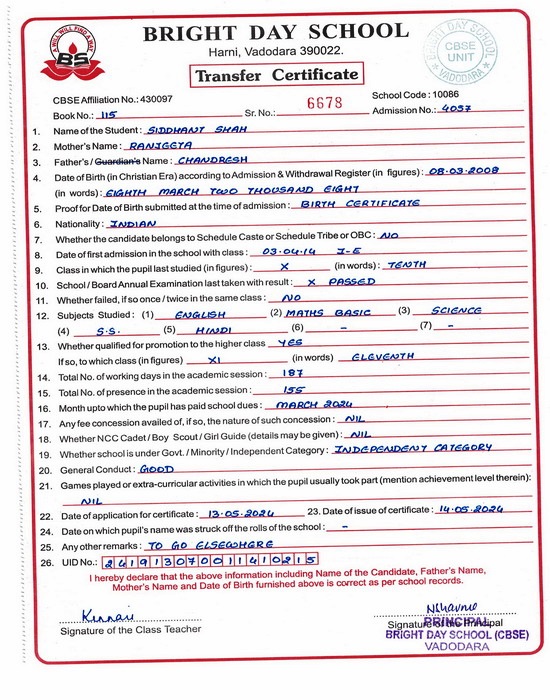 A WILL WILL FIND A WAY
BS
BRIGHT DAY SCHOOL
Harni, Vadodara 390022.
Transfer Certificate
BRIGHT DAY SCHOOL
CBSE
UNIT
VADODARA
CBSE Affiliation No.: 430097 School Code : 10086
Book No.: 115 Sr. No.: 6678 Admission No.: 4057
1. Name of the Student : SIDDHANT SHAH
2. Mother's Name : RANJEETA
3. Father's / Guardian's Name : CHANDRESH
4. Date of Birth (in Christian Era) according to Admission & Withdrawal Register (in figures) : 08-03-2008
(in words) : EIGHTH MARCH TWO THOUSAND EIGHT
5. Proof for Date of Birth submitted at the time of admission : BIRTH CERTIFICATE
6. Nationality : INDIAN
7. Whether the candidate belongs to Schedule Caste or Schedule Tribe or OBC : NO
8. Date of first admission in the school with class : 03-04-14 I-E
9. Class in which the pupil last studied (in figures) : X (in words) : TENTH
10. School / Board Annual Examination last taken with result : X PASSED
11. Whether failed, if so once / twice in the same class : NO
12. Subjects Studied : (1) ENGLISH (2) MATHS BASIC (3) SCIENCE
(4) S.S. (5) HINDI (6) - (7) -
13. Whether qualified for promotion to the higher class YES
If so, to which class (in figures) XI (in words) ELEVENTH
14. Total No. of working days in the academic session : 187
15. Total No. of presence in the academic session : 155
16. Month upto which the pupil has paid school dues : MARCH 2024
17. Any fee concession availed of, if so, the nature of such concession : NIL
18. Whether NCC Cadet / Boy Scout / Girl Guide (details may be given) : NIL
19. Whether school is under Govt. / Minority / Independent Category : INDEPENDENT CATEGORY
20. General Conduct : GOOD
21. Games played or extra-curricular activities in which the pupil usually took part (mention achievement level therein):
NIL
22. Date of application for certificate : 13-05-2024 23. Date of issue of certificate : 14-05-2024
24. Date on which pupil's name was struck off the rolls of the school : -
25. Any other remarks : TO GO ELSEWHERE
26. UID No.: 241913070011410215
I hereby declare that the above information including Name of the Candidate, Father's Name,
Mother's Name and Date of Birth furnished above is correct as per school records.
Signature of the Class Teacher Signature of the Principal
PRINCIPAL
BRIGHT DAY SCHOOL (CBSE)
VADODARA